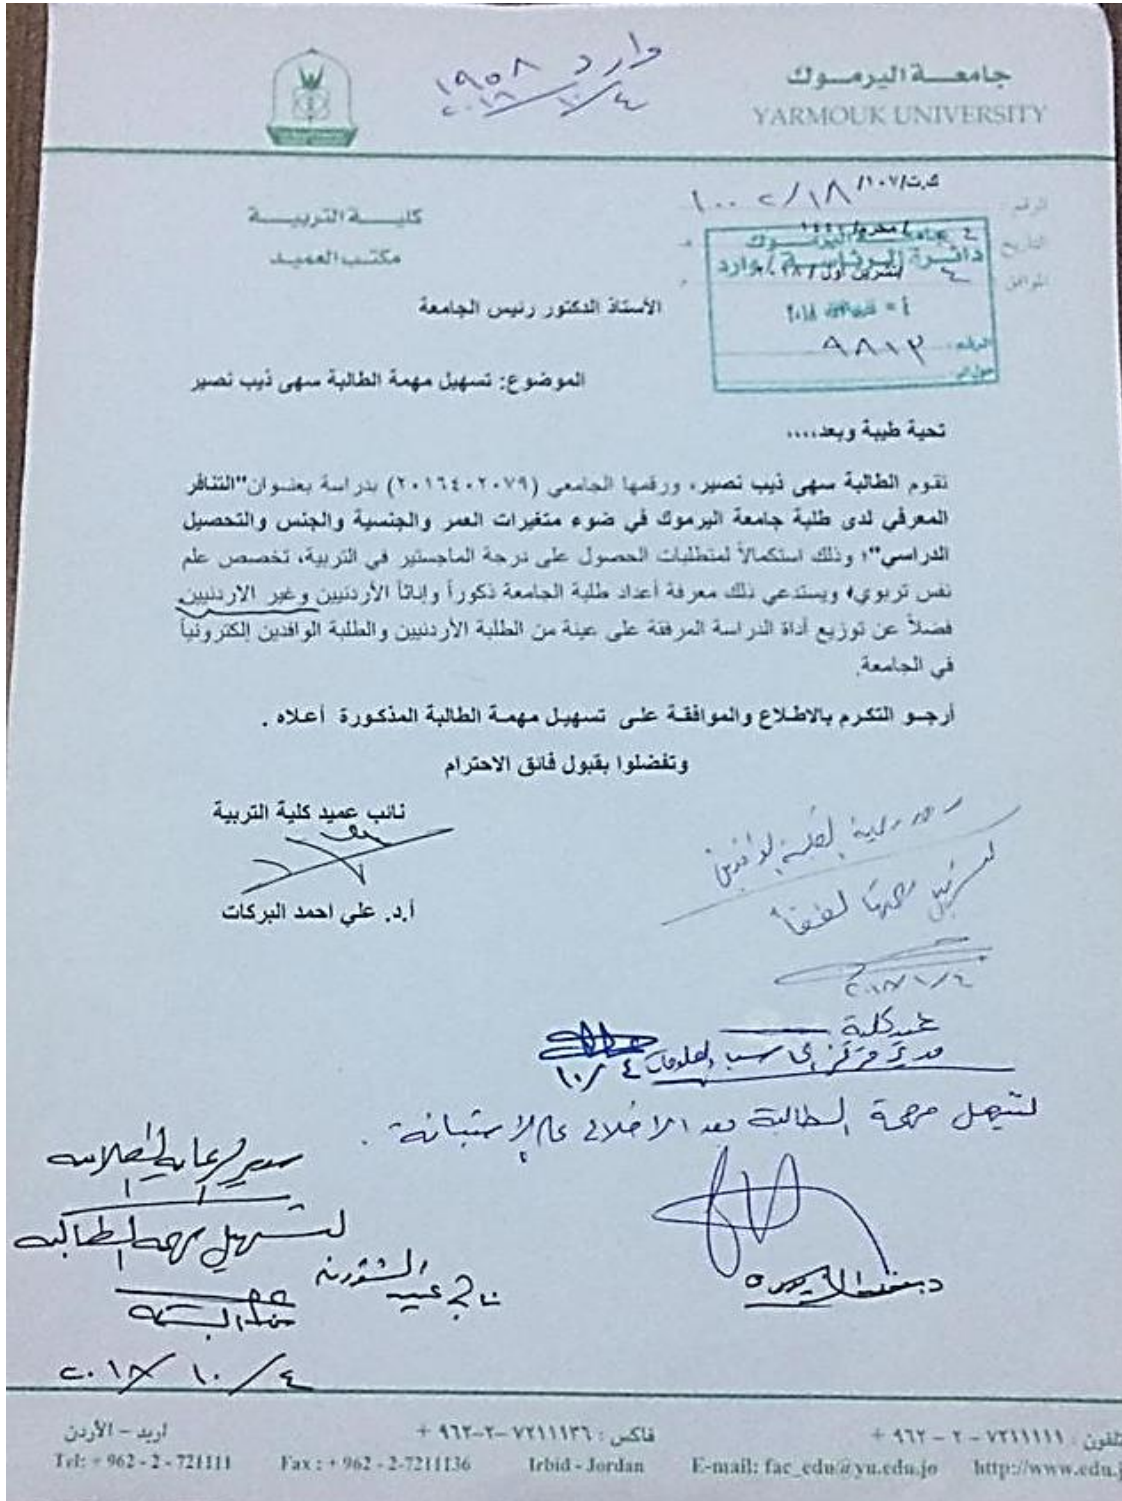 وارد ١٩٥٨
٢٠١٨/١٠/٤
جامعـــة اليرمـــوك
YARMOUK UNIVERSITY
كليـــة التربيـــة
مكتب العميد
الرقم
ك.ت/١٠٧/
١٠٠٢/١٨
التاريخ
الموافق
تشرين أول
جامعـة اليرمـوك
دائـرة الـرئاسـة / وارد
٢٠١٨
الرقم
٩٨١٣
الأستاذ الدكتور رئيس الجامعة
الموضوع: تسهيل مهمة الطالبة سهى ذيب نصير
تحية طيبة وبعد....
تقوم الطالبة سهى ذيب نصير، ورقمها الجامعي (٢٠١٦٤٠٢٠٧٩) بدراسة بعنوان"التنافر
المعرفي لدى طلبة جامعة اليرموك في ضوء متغيرات العمر والجنسية والجنس والتحصيل
الدراسي"؛ وذلك استكمالاً لمتطلبات الحصول على درجة الماجستير في التربية، تخصص علم
نفس تربوي، ويستدعي ذلك معرفة أعداد طلبة الجامعة ذكوراً وإناثاً الأردنيين وغير الاردنيين
فضلاً عن توزيع أداة الدراسة المرفقة على عينة من الطلبة الأردنيين والطلبة الوافدين إلكترونياً
في الجامعة.
أرجـو التكرم بالاطلاع والموافقة على تسهيل مهمة الطالبة المذكورة أعلاه .
وتفضلوا بقبول فائق الاحترام
نائب عميد كلية التربية
أ.د. علي احمد البركات
لطلبة الوافدين
لتسهيل مهمتها
عميد كلية
مدير مركز الحاسب والمعلومات ١٠/٤
لتسهيل مهمة الطالبة بعد الاطلاع على الإستبانة .
لتسهيل مهمة الطالبة
٢٠١٨/١٠/٤
اربد – الأردن
فاكس : ٧٢١١١٣٦-٢-٩٦٢ +
تلفون : ٧٢١١١١١ – ٢ – ٩٦٢ +
Tel: + 962 - 2 - 721111 Fax : + 962 - 2-7211136 Irbid - Jordan E-mail: fac_edu@yu.edu.jo http://www.edu.j